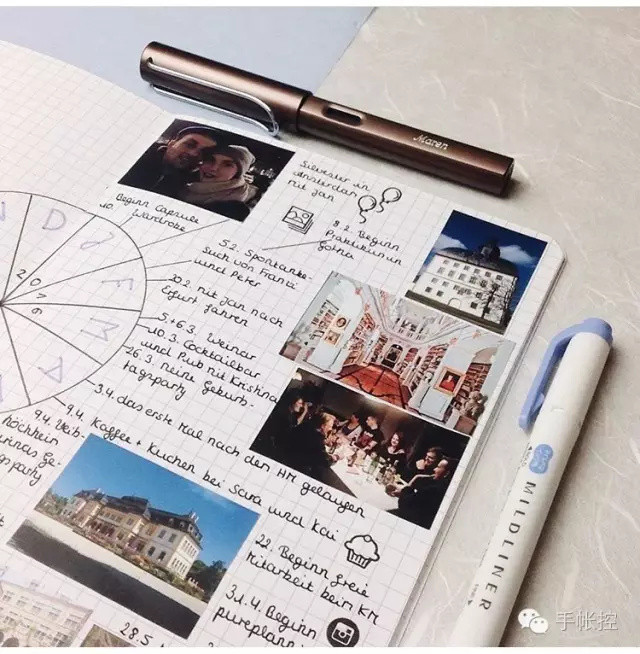 Maren
Silvester in
Amsterdam
mit Jan
Beginn Capsule
Wardrobe
8.2. Beginn
Praktikum in
Gotha
5.2. Spontanbe-
such von Franzi
und Peter
20.2. mit Jan nach
Erfurt fahren
5.+6.3. Weimar
10.3. Cocktailbar
und Pub mit Kristina
26.3. meine Geburts-
tagsparty
3.4. das erste Mal nach dem HM gelaufen
9.4. Kaffee + Kuchen bei Sara und Kai
9.4. Weib-
22. Beginn freie
Mitarbeit beim KM
31.4. Beginn
pureplann
28.5
2016
D
J
F
M
A
MILDLINER
手帐控